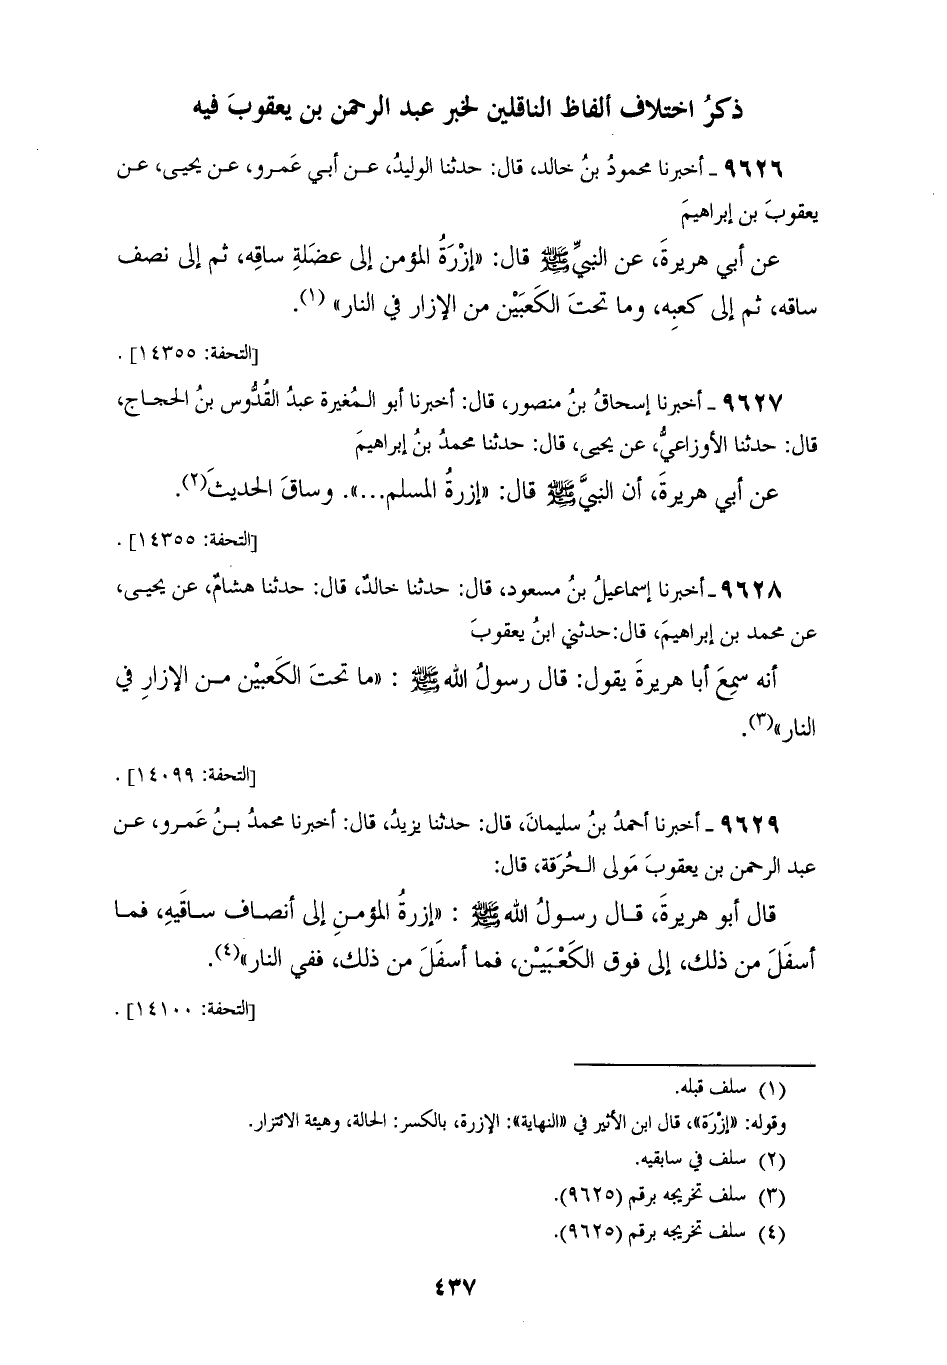 ذكرُ اختلاف ألفاظ الناقلين لخبر عبد الرحمن بن يعقوبَ فيه
٩٦٢٦ ـ أخبرنا محمودُ بنُ خالد، قال: حدثنا الوليدُ، عن أبي عَمرو، عن يحيى، عن
يعقوبَ بن إبراهيمَ
عن أبي هريرةَ، عن النبيِّ ﷺ قال: «إزْرَةُ المؤمن إلى عضَلةِ ساقِه، ثم إلى نصف
ساقه، ثم إلى كعبِه، وما تحتَ الكَعبَيْن من الإزار في النار» (١).
[التحفة: ١٤٣٥٥] .
٩٦٢٧ ـ أخبرنا إسحاقُ بنُ منصور، قال: أخبرنا أبو المُغيرة عبدُ القُدُّوس بنُ الحجاج،
قال: حدثنا الأوزاعيُّ، عن يحيى، قال: حدثنا محمدُ بنُ إبراهيمَ
عن أبي هريرةَ، أن النبيَّ ﷺ قال: «إزرةُ المسلم...». وساقَ الحديثَ(٢).
[التحفة: ١٤٣٥٥] .
٩٦٢٨ ـ أخبرنا إسماعيلُ بنُ مسعود، قال: حدثنا خالدٌ، قال: حدثنا هشامٌ، عن يحيى،
عن محمد بن إبراهيمَ، قال:حدثني ابنُ يعقوبَ
أنه سمِعَ أبا هريرةَ يقول: قال رسولُ الله ﷺ : «ما تحتَ الكَعبيْن من الإزارِ في
النار»(٣).
[التحفة: ١٤٠٩٩] .
٩٦٢٩ ـ أخبرنا أحمدُ بنُ سليمانَ، قال: حدثنا يزيدُ، قال: أخبرنا محمدُ بنُ عَمرو، عن
عبد الرحمن بن يعقوبَ مَولى الحُرَقة، قال:
قال أبو هريرةَ، قال رسولُ الله ﷺ : «إزرةُ المؤمنِ إلى أنصاف ساقَيهِ، فما
أسفَلَ من ذلك، إلى فوق الكَعْبَيْن، فما أسفَلَ من ذلك، ففي النار»(٤).
[التحفة: ١٤١٠٠] .
(١) سلف قبله.
وقوله: «إزْرَة»، قال ابن الأثير في «النهاية»: الإزرة، بالكسر: الحالة، وهيئة الائتزار.
(٢) سلف في سابقيه.
(٣) سلف تخريجه برقم (٩٦٢٥).
(٤) سلف تخريجه برقم (٩٦٢٥).
٤٣٧